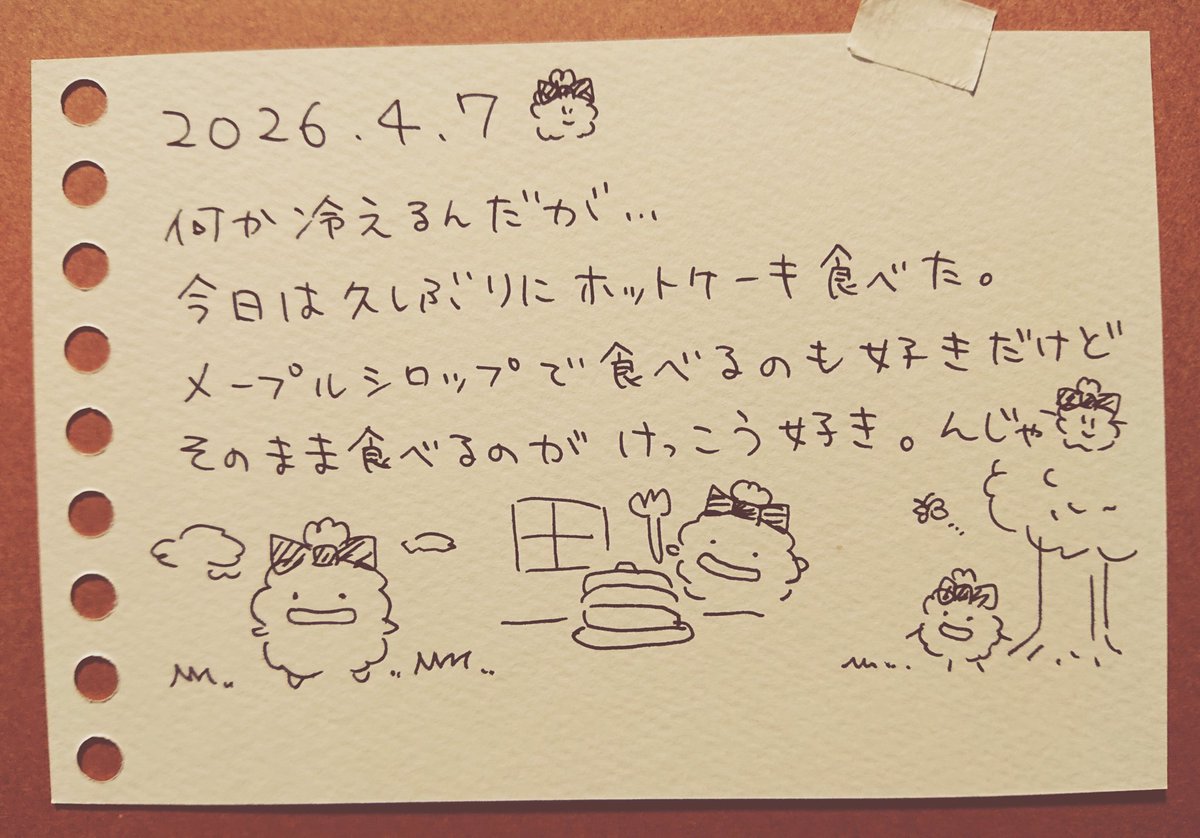 2026.4.7
何か冷えるんだが…
今日は久しぶりにホットケーキ食べた。
メープルシロップで食べるのも好きだけど
そのまま食べるのがけっこう好き。んじゃ